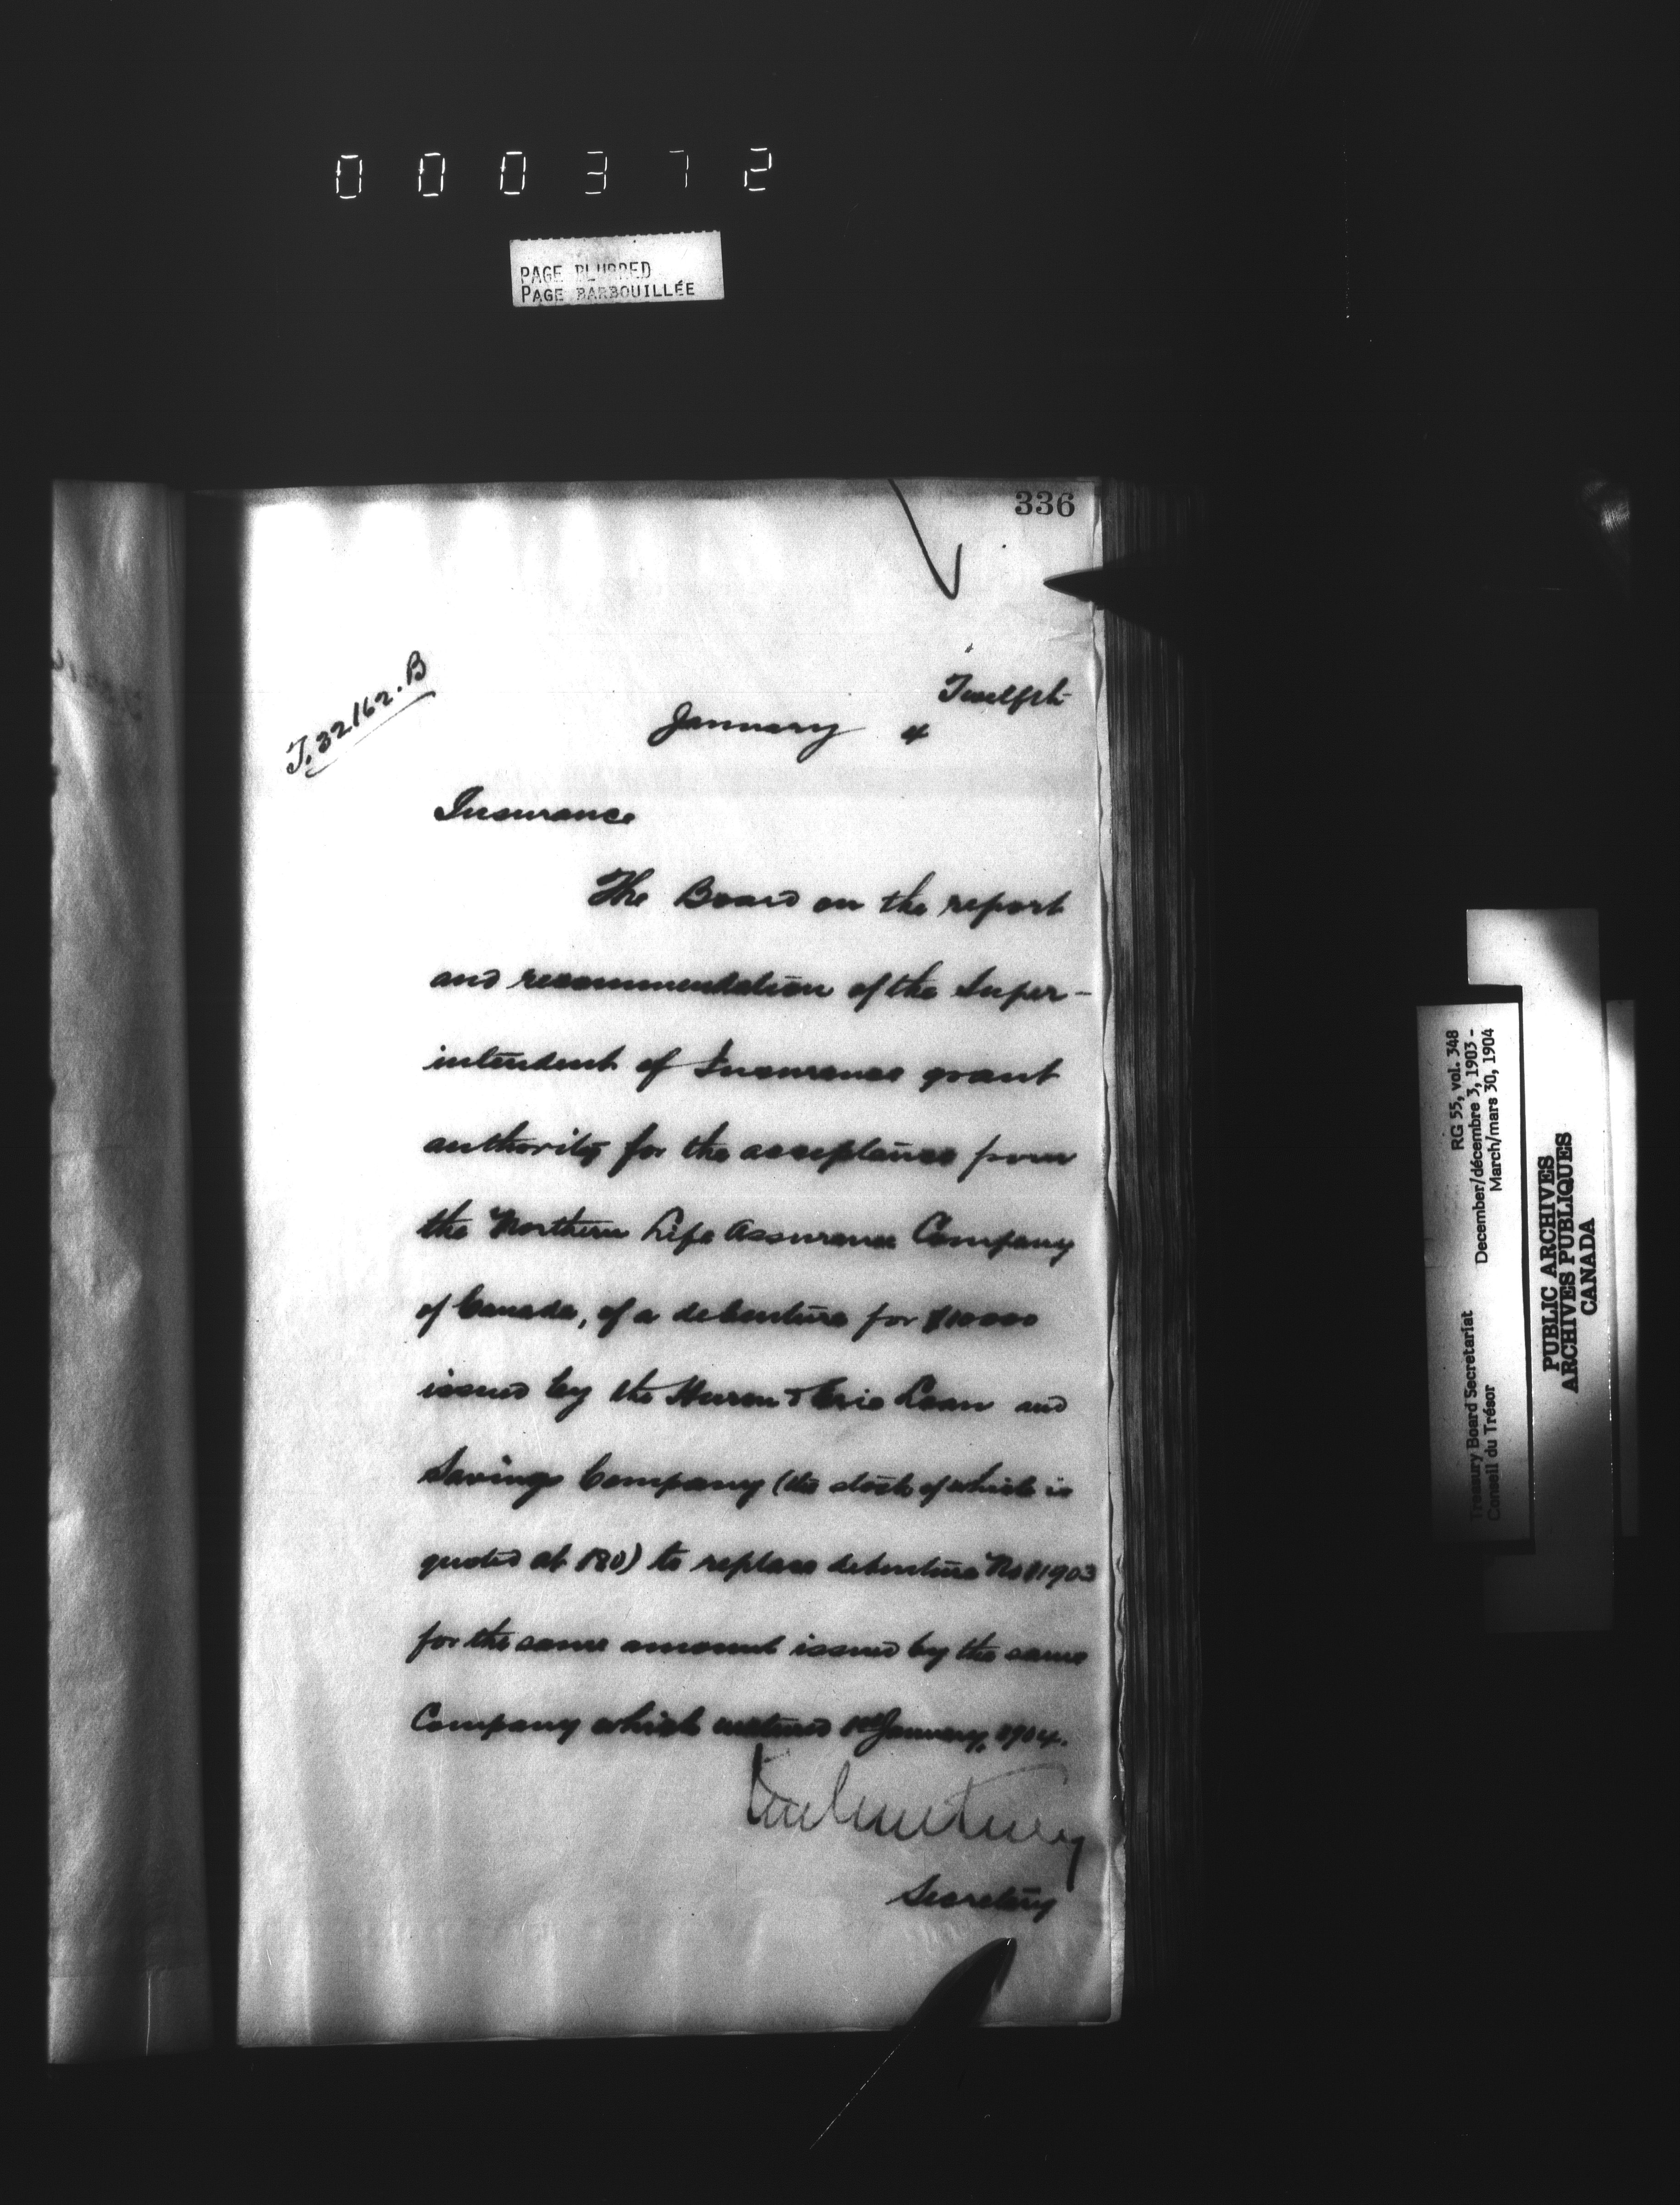 000372
PAGE BLURRED
PAGE BARBOUILLÉE
336
T. 32162. B
Twelfth
January 4
Insurance
The Board on the report
and recommendation of the Super-
intendent of Insurance grant
authority for the acceptance from
the Northern Life Assurance Company
of Canada, of a debenture for $10000
issued by the Huron & Erie Loan and
Savings Company (the stock of which is
quoted at 180) to replace debenture No
for the same amount issued by the same
Company which matured 1st January, 1904.
Secretary
RG 55, vol. 348
Treasury Board Secretariat December/décembre 3, 1903 -
Conseil du Trésor March/mars 30, 1904
PUBLIC ARCHIVES
ARCHIVES PUBLIQUES
CANADA